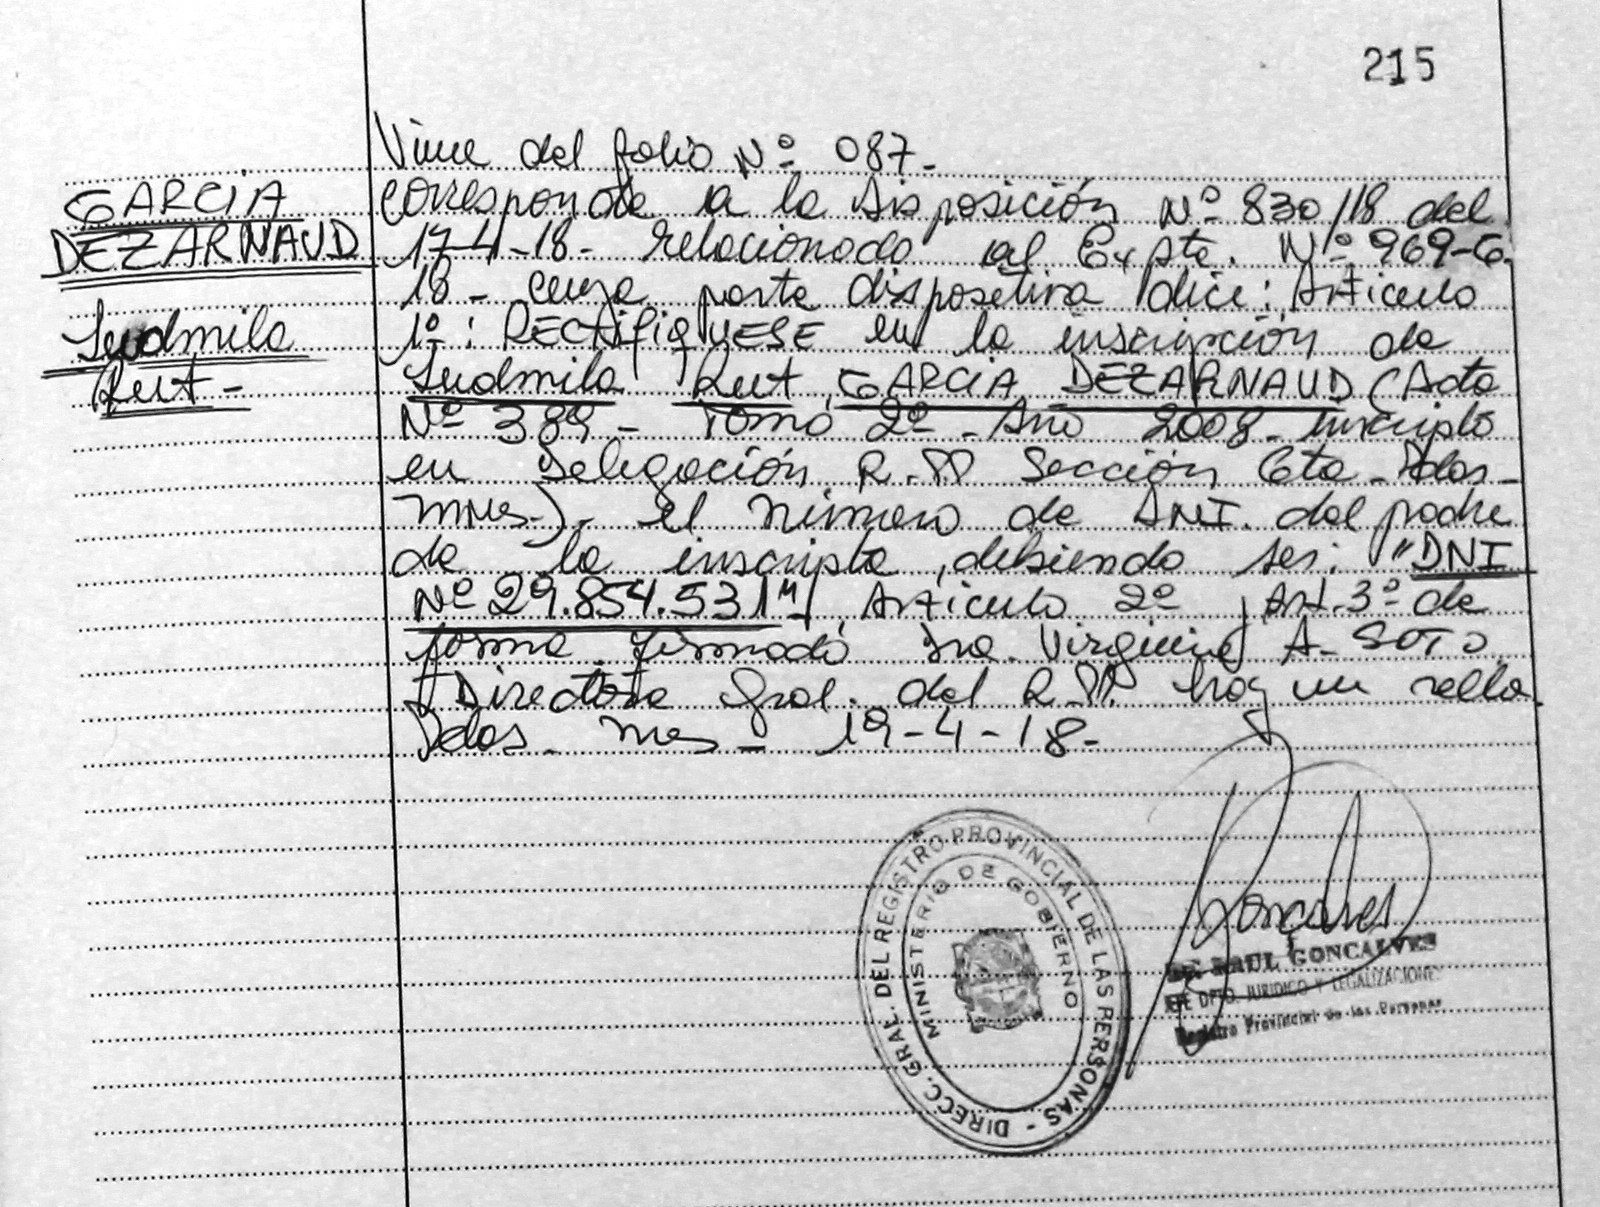 215
Viene del folio Nº 087.-
GARCIA
DEZARNAUD
Ludmila
Rut -
corresponde a la Disposición Nº 830/18 del
17-4-18- relacionado al Expte. Nº 969-G-
18 - cuya parte dispositiva dice: Artículo
1º: RECTIFIQUESE en la inscripción de
Ludmila Rut GARCIA DEZARNAUD (Acta
Nº 389 - Tomo 2º - Año 2008 - inscripta
en Delegación R.PP Sección 6ta - Pdas -
Mnes-), el número de DNI. del padre
de la inscripta, debiendo ser: "DNI
Nº 29.854.531", Artículo 2º, Art. 3º de
forma. Firmado Dra. Virginia A. SOTO
Directora Gral. del R.PP. hay un sello
Pdas. Mnes - 19-4-18-
DIRECC. GRAL. DEL REGISTRO PROVINCIAL DE LAS PERSONAS -
MINISTERIO DE GOBIERNO
Goncalves
Dr. RAUL GONCALVES
JEFE DPTO. JURIDICO Y LEGALIZACIONES
Registro Provincial de las Personas